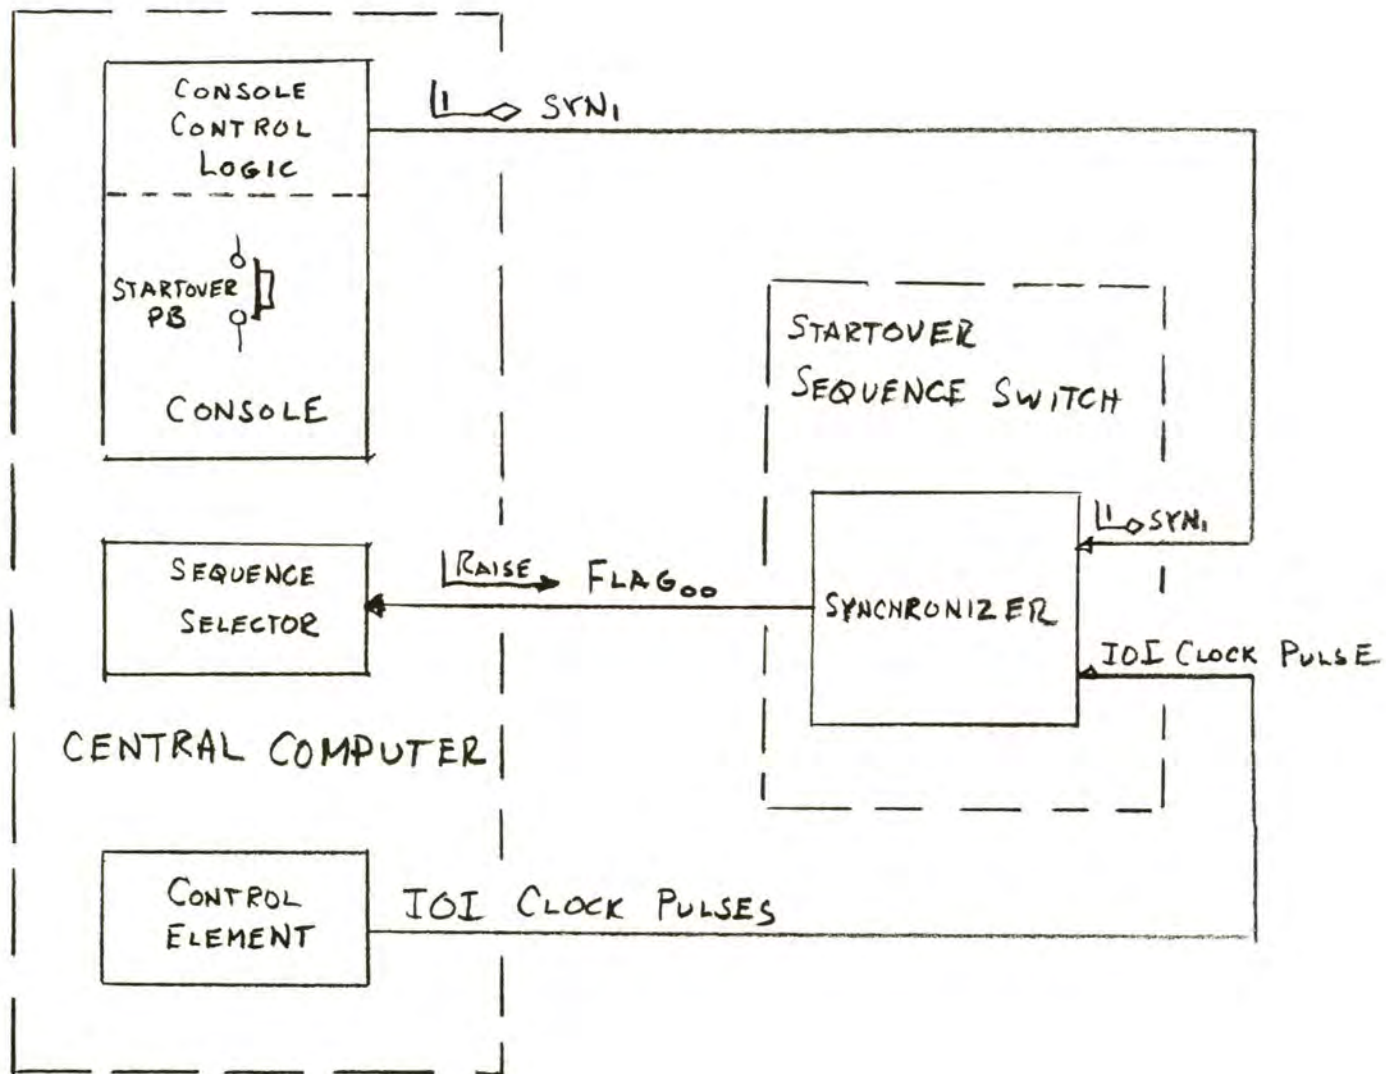 CONSOLE
CONTROL
LOGIC
1 SYN1
STARTOVER
PB
CONSOLE
STARTOVER
SEQUENCE SWITCH
1 SYN1
SEQUENCE
SELECTOR
RAISE FLAG00
SYNCHRONIZER
IOI CLOCK PULSE
CENTRAL COMPUTER
CONTROL
ELEMENT
IOI CLOCK PULSES